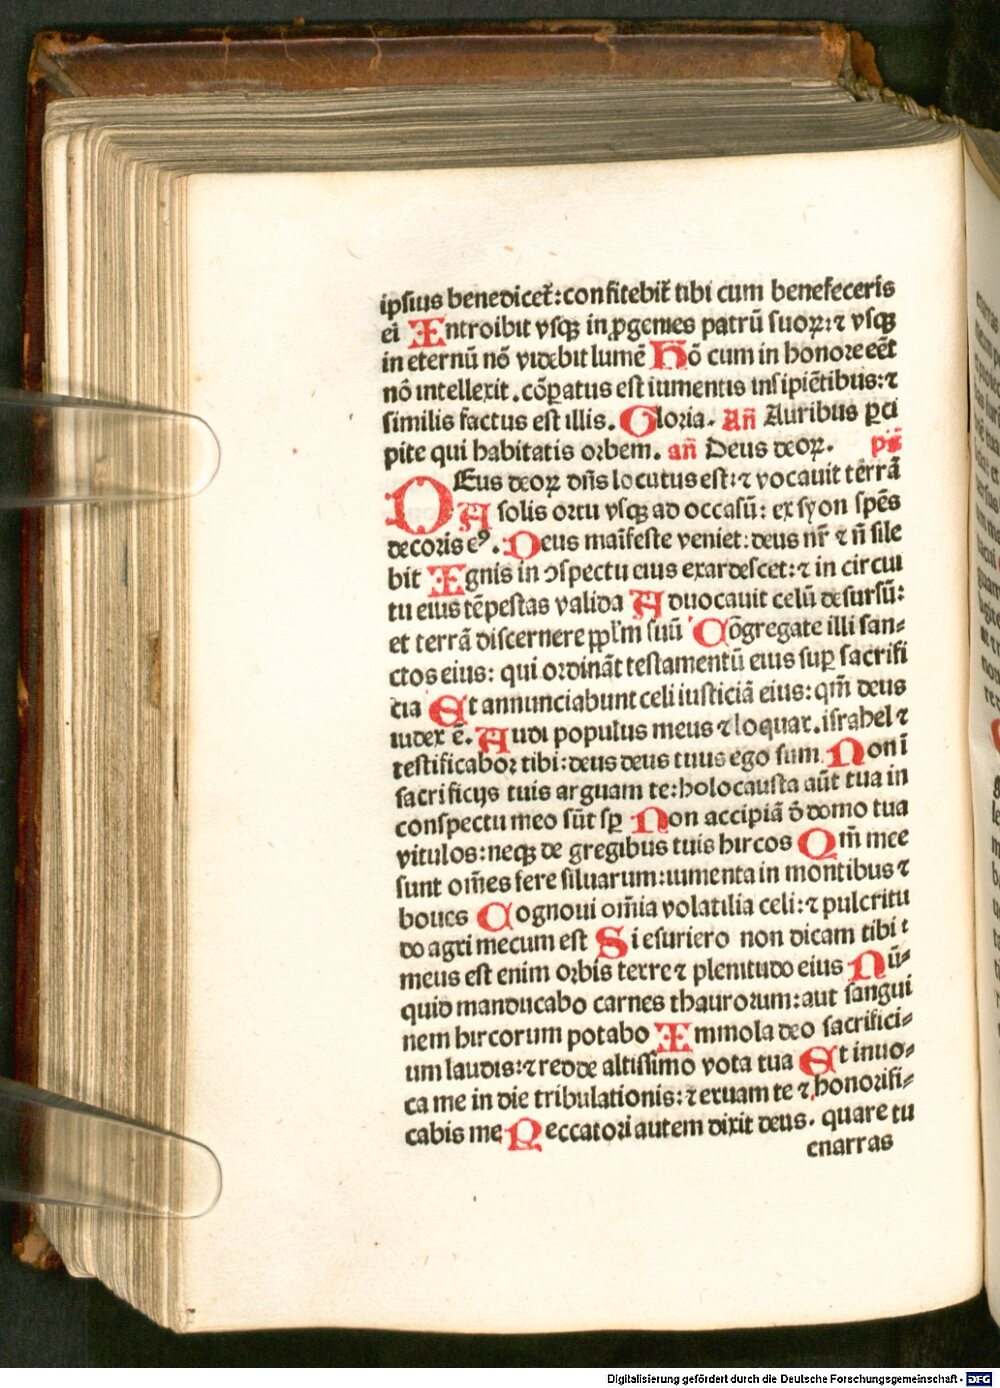 ipsius benedicet᷑: confitebit᷑ tibi cum benefeceris
ei Introibit vsqꝫ in ꝓgenies patrũ suoꝝ: ⁊ vsqꝫ
in eternũ nõ videbit lumẽ Hõ cum in honore eẽt
nõ intellexit. cõꝑatus est iumentis insipiẽtibus: ⁊
similis factus est illis. Gloria. Añ Auribus ꝑci
pite qui habitatis orbem. añ Deus deoꝝ. ps̃
DEus deoꝝ dñs locutus est: ⁊ vocauit terrã
A solis ortu vsqꝫ ad occasũ: ex syon spẽs
decoris eꝰ. Deus maĩfeste veniet: deus nr̃ ⁊ ñ sile
bit Ignis in ↄspectu eius exardescet: ⁊ in circui
tu eius tẽpestas valida Aduocauit celũ desursũ:
et terrã discernere ppl̃m suũ Cõgregate illi san⸗
ctos eius: qui ordinãt testamentũ eius suꝑ sacrifi
cia Et annunciabunt celi iusticiã eius: qm̃ deus
iudex ẽ. Audi populus meus ⁊ loquar. israhel ⁊
testificabor tibi: deus deus tuus ego sum Non ĩ
sacrificijs tuis arguam te: holocausta aũt tua in
conspectu meo sũt sꝑ Non accipiã õ domo tua
vitulos: neqꝫ de gregibus tuis hircos Qm̃ mee
sunt om̃es fere siluarum: iumenta in montibus ⁊
boues Cognoui om̃ia volatilia celi: ⁊ pulcritu
do agri mecum est Si esuriero non dicam tibi:
meus est enim orbis terre ⁊ plenitudo eius Nũ⸗
quid manducabo carnes thaurorum: aut sangui
nem hircorum potabo Immola deo sacrifici⸗
um laudis: ⁊ redde altissimo vota tua Et inuo⸗
ca me in die tribulationis: ⁊ eruam te ⁊ honorifi⸗
cabis me Peccatori autem dixit deus. quare tu
enarras
Digitalisierung gefördert durch die Deutsche Forschungsgemeinschaft - DFG